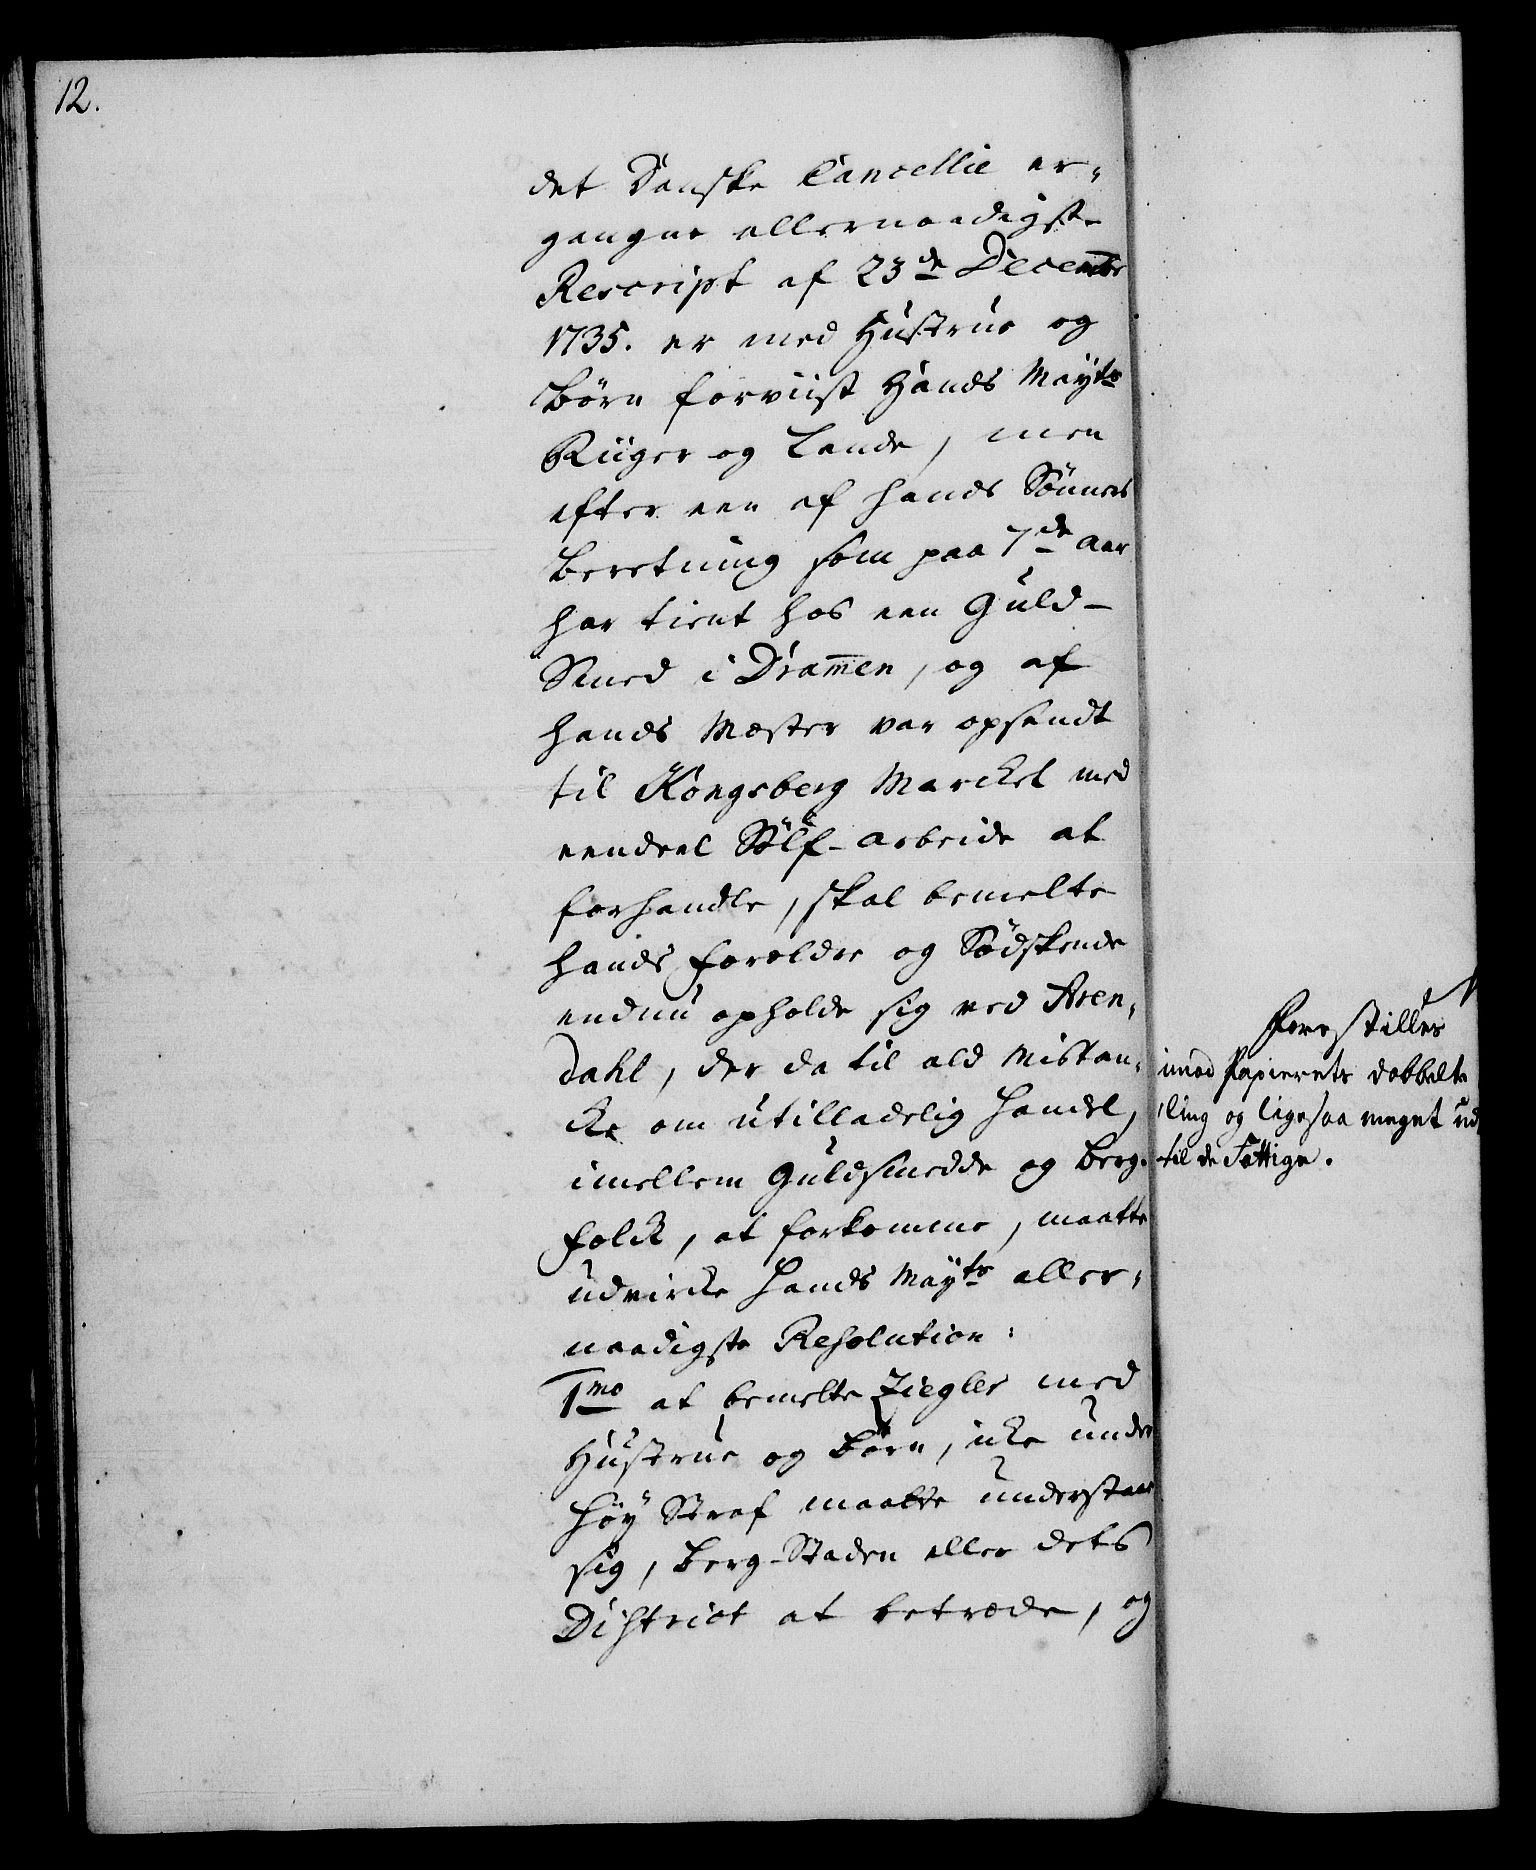 12.
det Danske Cancellie er-
gangne allernaadigste
Rescript af 23de Decembr
1735. er med Hustrue og
Børn forviist Hands Mayts
Riiger og Lande, men
efter een af hands Sønners
Beretning som paa 7de Aar
har tient hos een Guld-
Smed i Dram̅en, og af
hands Mester var opsendt
til Kongsberg Marcket med
eendeel Sølf-arbeide at
forhandle, skal bemelte
hands Forældre og Sødskende
endnu opholde sig ved Aren-
dahl, der da til ald Mistan-
cke om utilladelig Handel,
imellem Guldsmedde og Berg-
folck, at forkomme, maatte
udvircke Hands Mayts aller-
naadigste Resolution:
1mo at bemelte Ziegler med
Hustrue og Børn, icke under
høy Straf maatte understaae
sig, Berg-Staden eller dets
District at betræde, og
Forestilles
imod Papierets dobbelte
ling og ligesaa meget ud
til de Fattige.